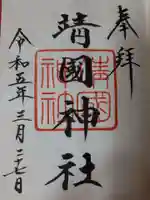 奉拝
靖國神社
令和五年三月二十七日
靖國
神社